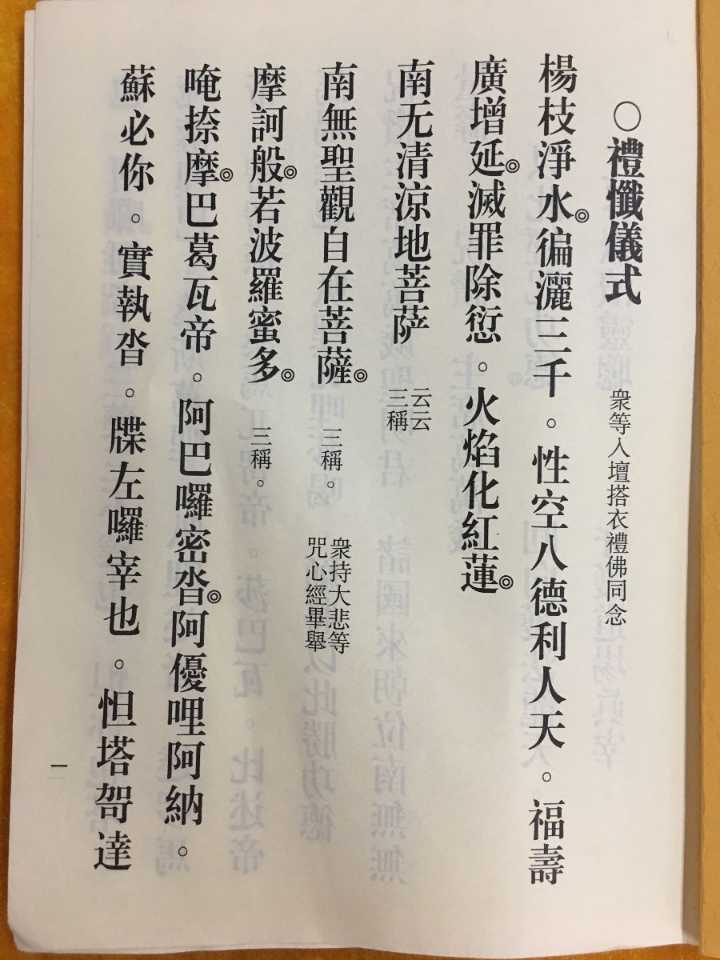 ○禮懺儀式 衆等入壇搭衣禮佛同念
楊枝淨水◎徧灑三千。性空八德利人天。福壽
廣增延◎滅罪除愆。火焰化紅蓮◎
南无清涼地菩萨 云云三稱
南無聖觀自在菩薩◎ 三稱。 衆持大悲等咒心經畢舉
摩訶般◎若波羅蜜多◎ 三稱。
唵捺摩◎巴葛瓦帝。阿巴囉密沓◎阿優哩阿納。
蘇必你。實執沓。牒左囉宰也。怛塔哿達
一